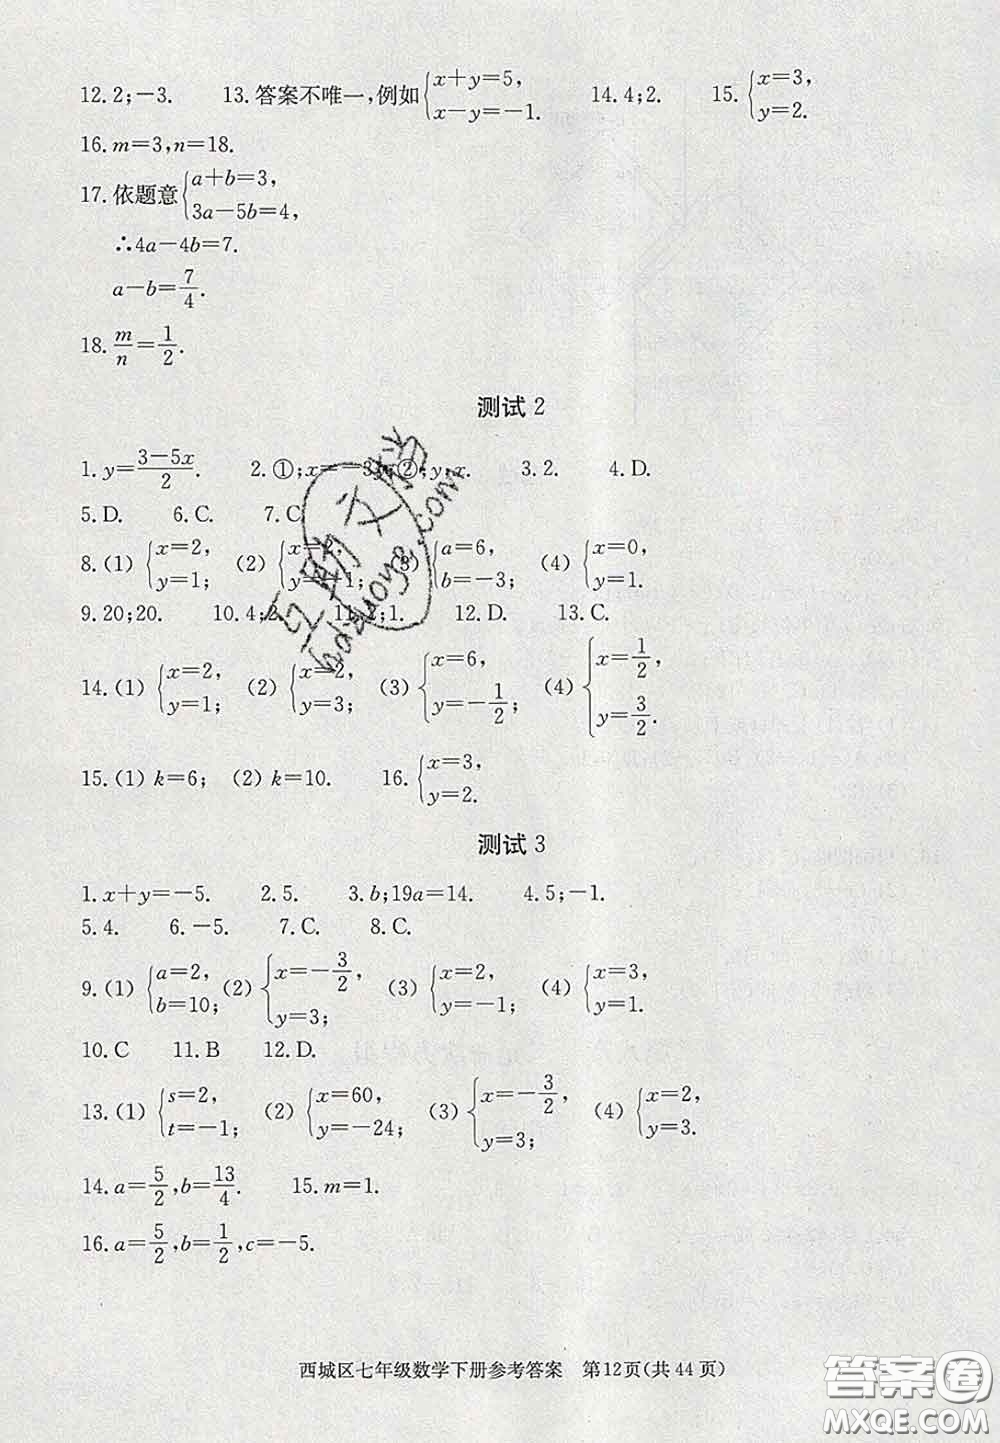 12.2;−3.  13.答案不唯一,例如{x+y=5, x−y=−1.  14.4;2.  15.{x=3, y=2.
16.m=3,n=18.
17.依题意{a+b=3, 3a−5b=4,
∴4a−4b=7.
a−b=7/4.
18.m/n=1/2.
测试2
1.y=(3−5x)/2.  2.①;x= 3y;②;y;x.  3.2.  4.D.
5.D.  6.C.  7.C
8.(1){x=2, y=1;  (2){x=2, y= 1;  (3){a=6, b=−3;  (4){x=0, y=1.
9.20;20.  10.4;2.  11.2;1.  12.D.  13.C.
14.(1){x=2, y=1;  (2){x=2, y=3;  (3){x=6, y=−1/2;  (4){x=1/2, y=3/2.
15.(1)k=6;  (2)k=10.  16.{x=3, y=2.
测试3
1.x+y=−5.  2.5.  3.b;19a=14.  4.5;−1.
5.4.  6.−5.  7.C.  8.C.
9.(1){a=2, b=10;  (2){x=−3/2, y=3;  (3){x=2, y=−1;  (4){x=3, y=1.
10.C  11.B  12.D.
13.(1){s=2, t=−1;  (2){x=60, y=−24;  (3){x=−3/2, y=3;  (4){x=2, y=3.
14.a=5/2,b=13/4.  15.m=1.
16.a=5/2,b=1/2,c=−5.
西城区七年级数学下册参考答案  第12页(共44页)
答案圈
MXQE.COM
互助文档
bdzuoye.com